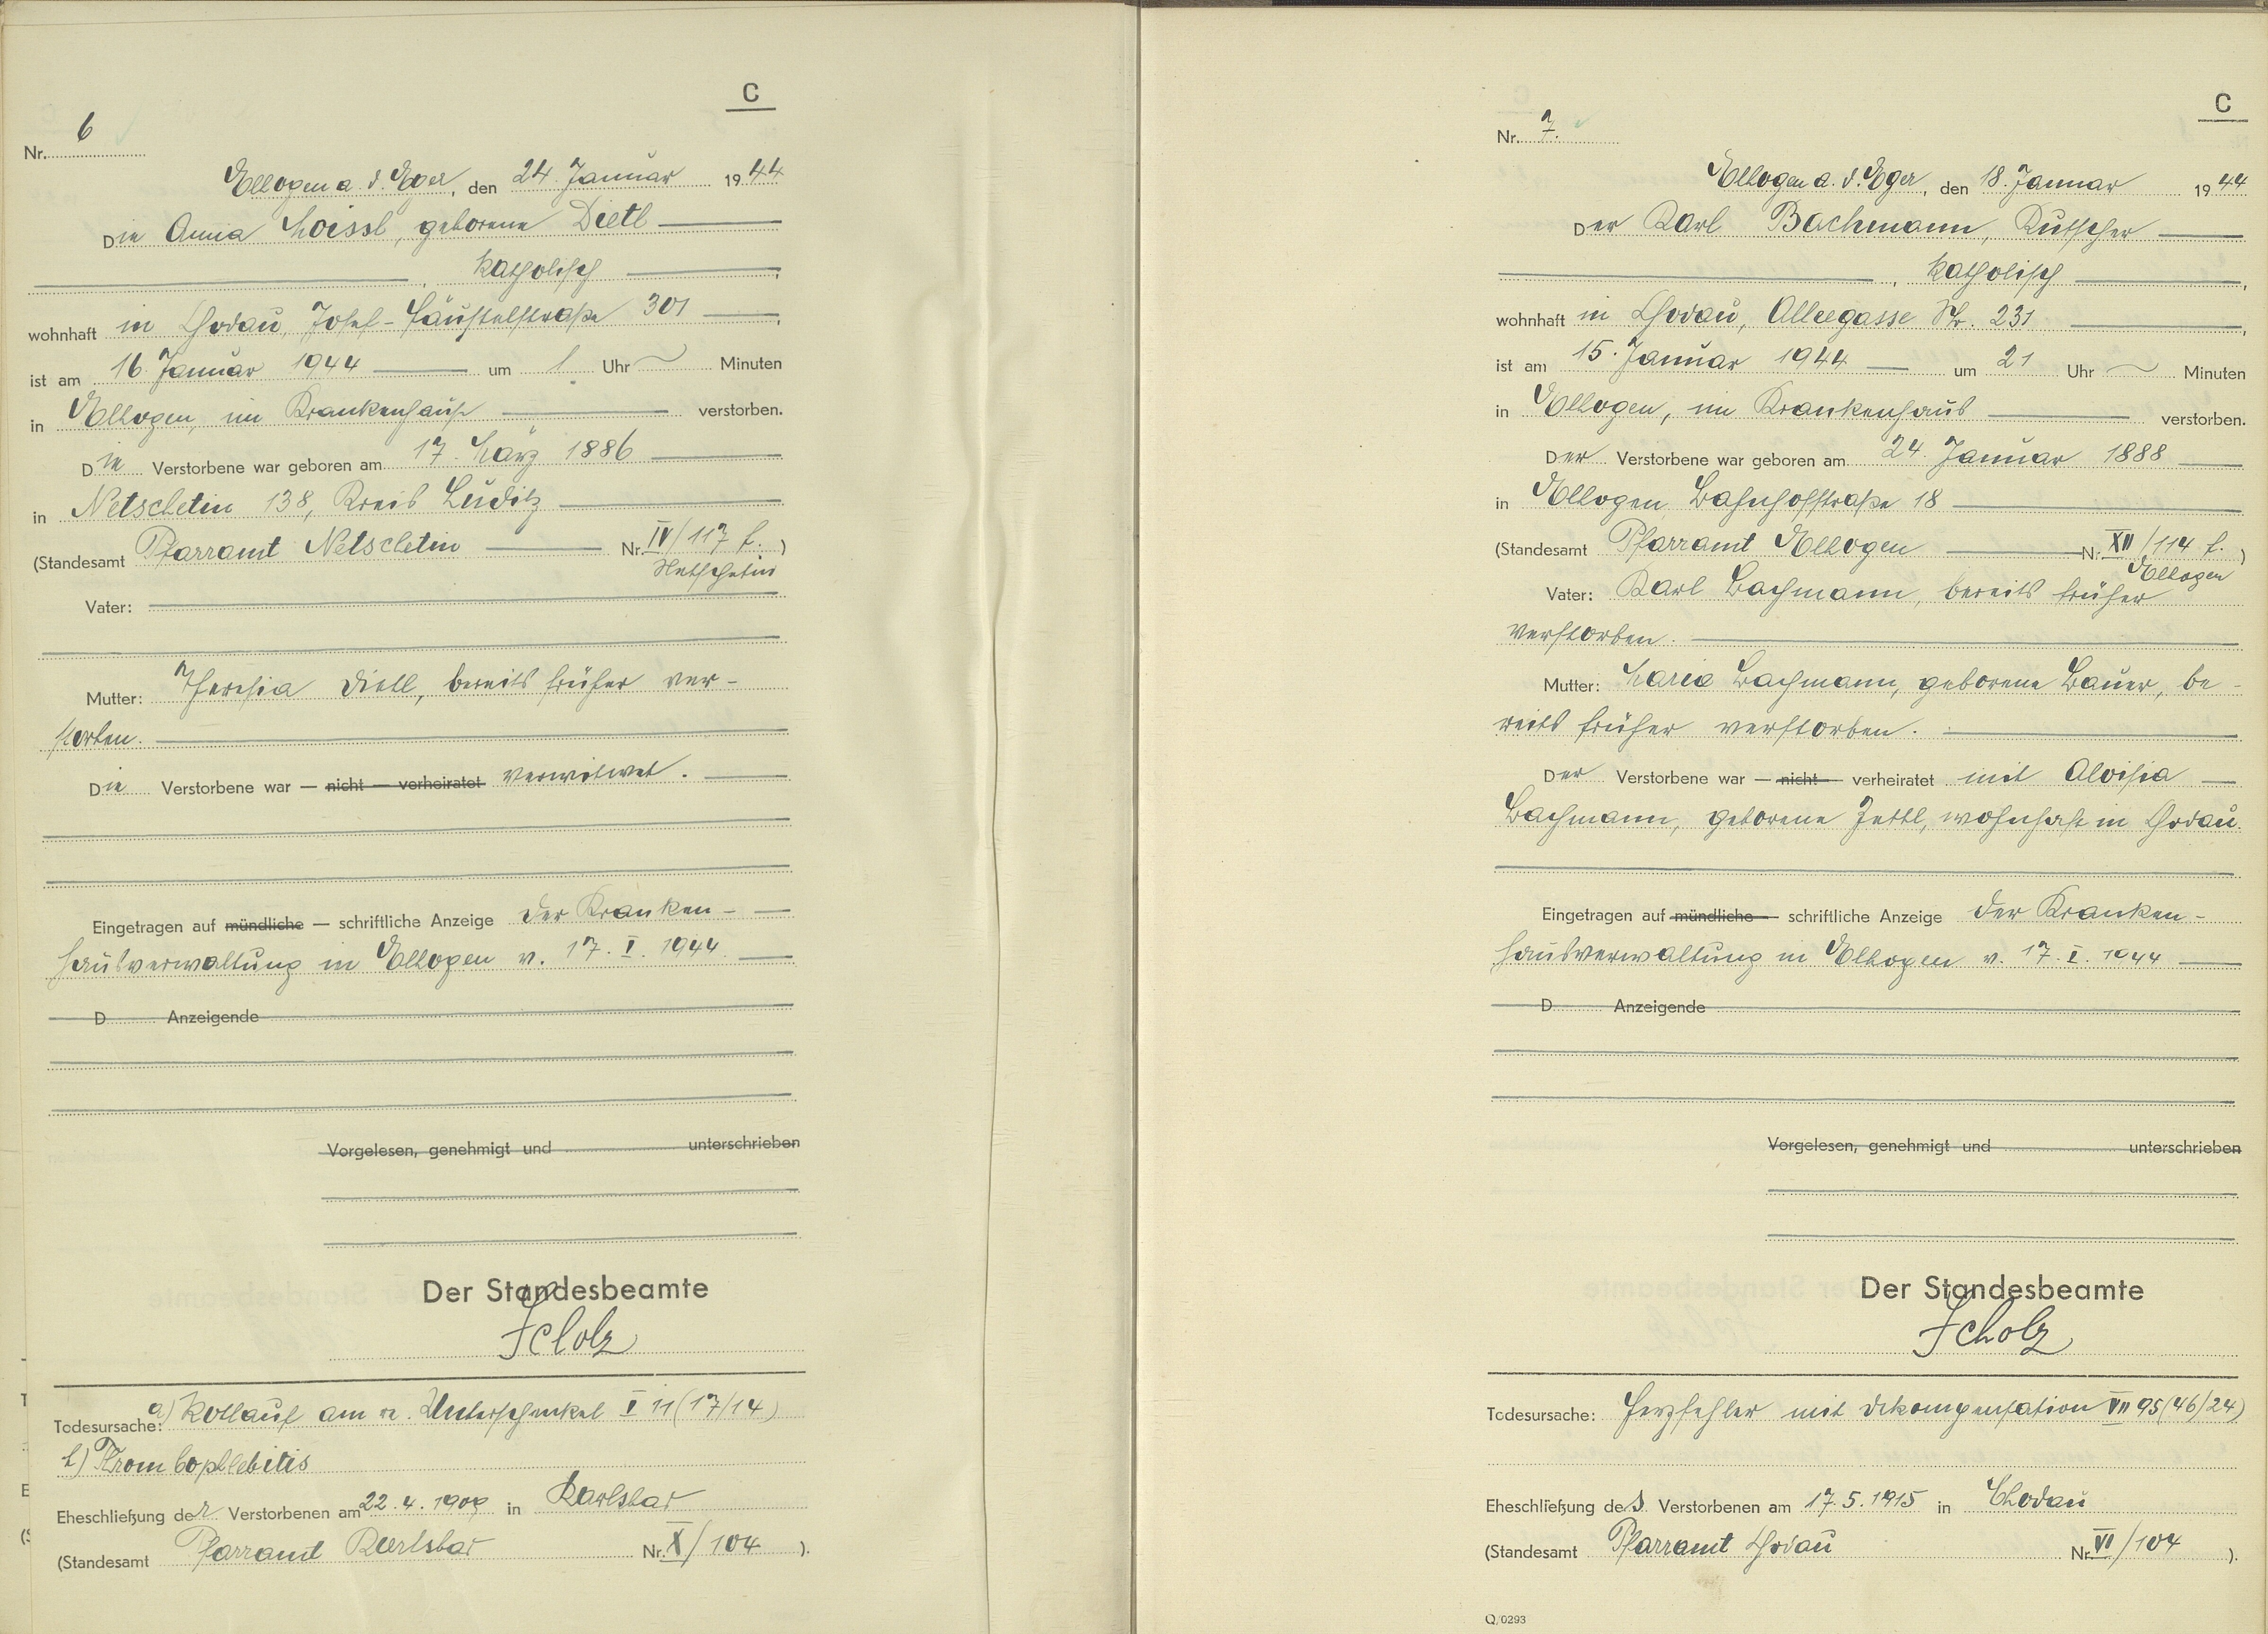 C
Nr. 6
Ellbogen a. d. Eger, den 24. Januar 1944
Die Anna Loissl, geborene Dietl
, katholisch
wohnhaft in Chodau, Josef-Täuschelstraße 301
ist am 16. Januar 1944 um 1 Uhr Minuten
in Ellbogen, im Krankenhause verstorben.
Die Verstorbene war geboren am 17. März 1886
in Netschetin 138, Kreis Luditz
(Standesamt Pfarramt Netschetin Nr. IV/117 f.)
Netschetin
Vater:
Mutter: Theresia Dietl, bereits früher ver-
storben.
Die Verstorbene war — nicht — verheiratet verwitwet.
Eingetragen auf mündliche — schriftliche Anzeige der Kranken-
hausverwaltung in Ellbogen v. 17. I. 1944
D Anzeigende
Vorgelesen, genehmigt und unterschrieben
Der Standesbeamte
Scholz
Todesursache: a) Rotlauf am r. Unterschenkel I 11 (17/14)
b) Trombophlebitis
Eheschließung der Verstorbenen am 22.4.1909 in Karlsbad
(Standesamt Pfarramt Karlsbad Nr. X/104 ).
C
Nr. 7.
Ellbogen a. d. Eger, den 18. Januar 1944
Der Karl Bachmann, Kutscher
, katholisch
wohnhaft in Chodau, Alleegasse Nr. 231
ist am 15. Januar 1944 um 21 Uhr Minuten
in Ellbogen, im Krankenhaus verstorben.
Der Verstorbene war geboren am 24. Januar 1888
in Ellbogen Bahnhofstraße 18
(Standesamt Pfarramt Ellbogen Nr. XII/114 f. )
Ellbogen
Vater: Karl Bachmann, bereits früher
verstorben.
Mutter: Maria Bachmann, geborene Bauer, be-
reits früher verstorben.
Der Verstorbene war — nicht — verheiratet mit Aloisia
Bachmann, geborene Zettl, wohnhaft in Chodau.
Eingetragen auf mündliche — schriftliche Anzeige der Kranken-
hausverwaltung in Ellbogen v. 17. I. 1944
D Anzeigende
Vorgelesen, genehmigt und unterschrieben
Der Standesbeamte
Scholz
Todesursache: Herzfehler mit Dekompensation VII 95 (46/24)
Eheschließung des Verstorbenen am 17.5.1915 in Chodau
(Standesamt Pfarramt Chodau Nr. VI/104 ).
Q/0293